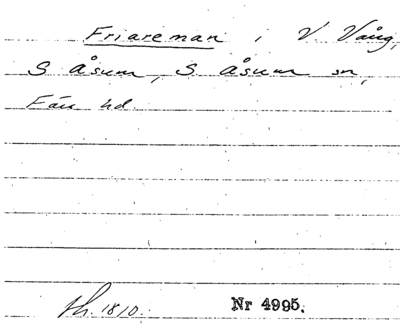 Friareman, V. Vång,
S Åsum, S. Åsum sn,
Färs hd.
1810. Nr 4995.